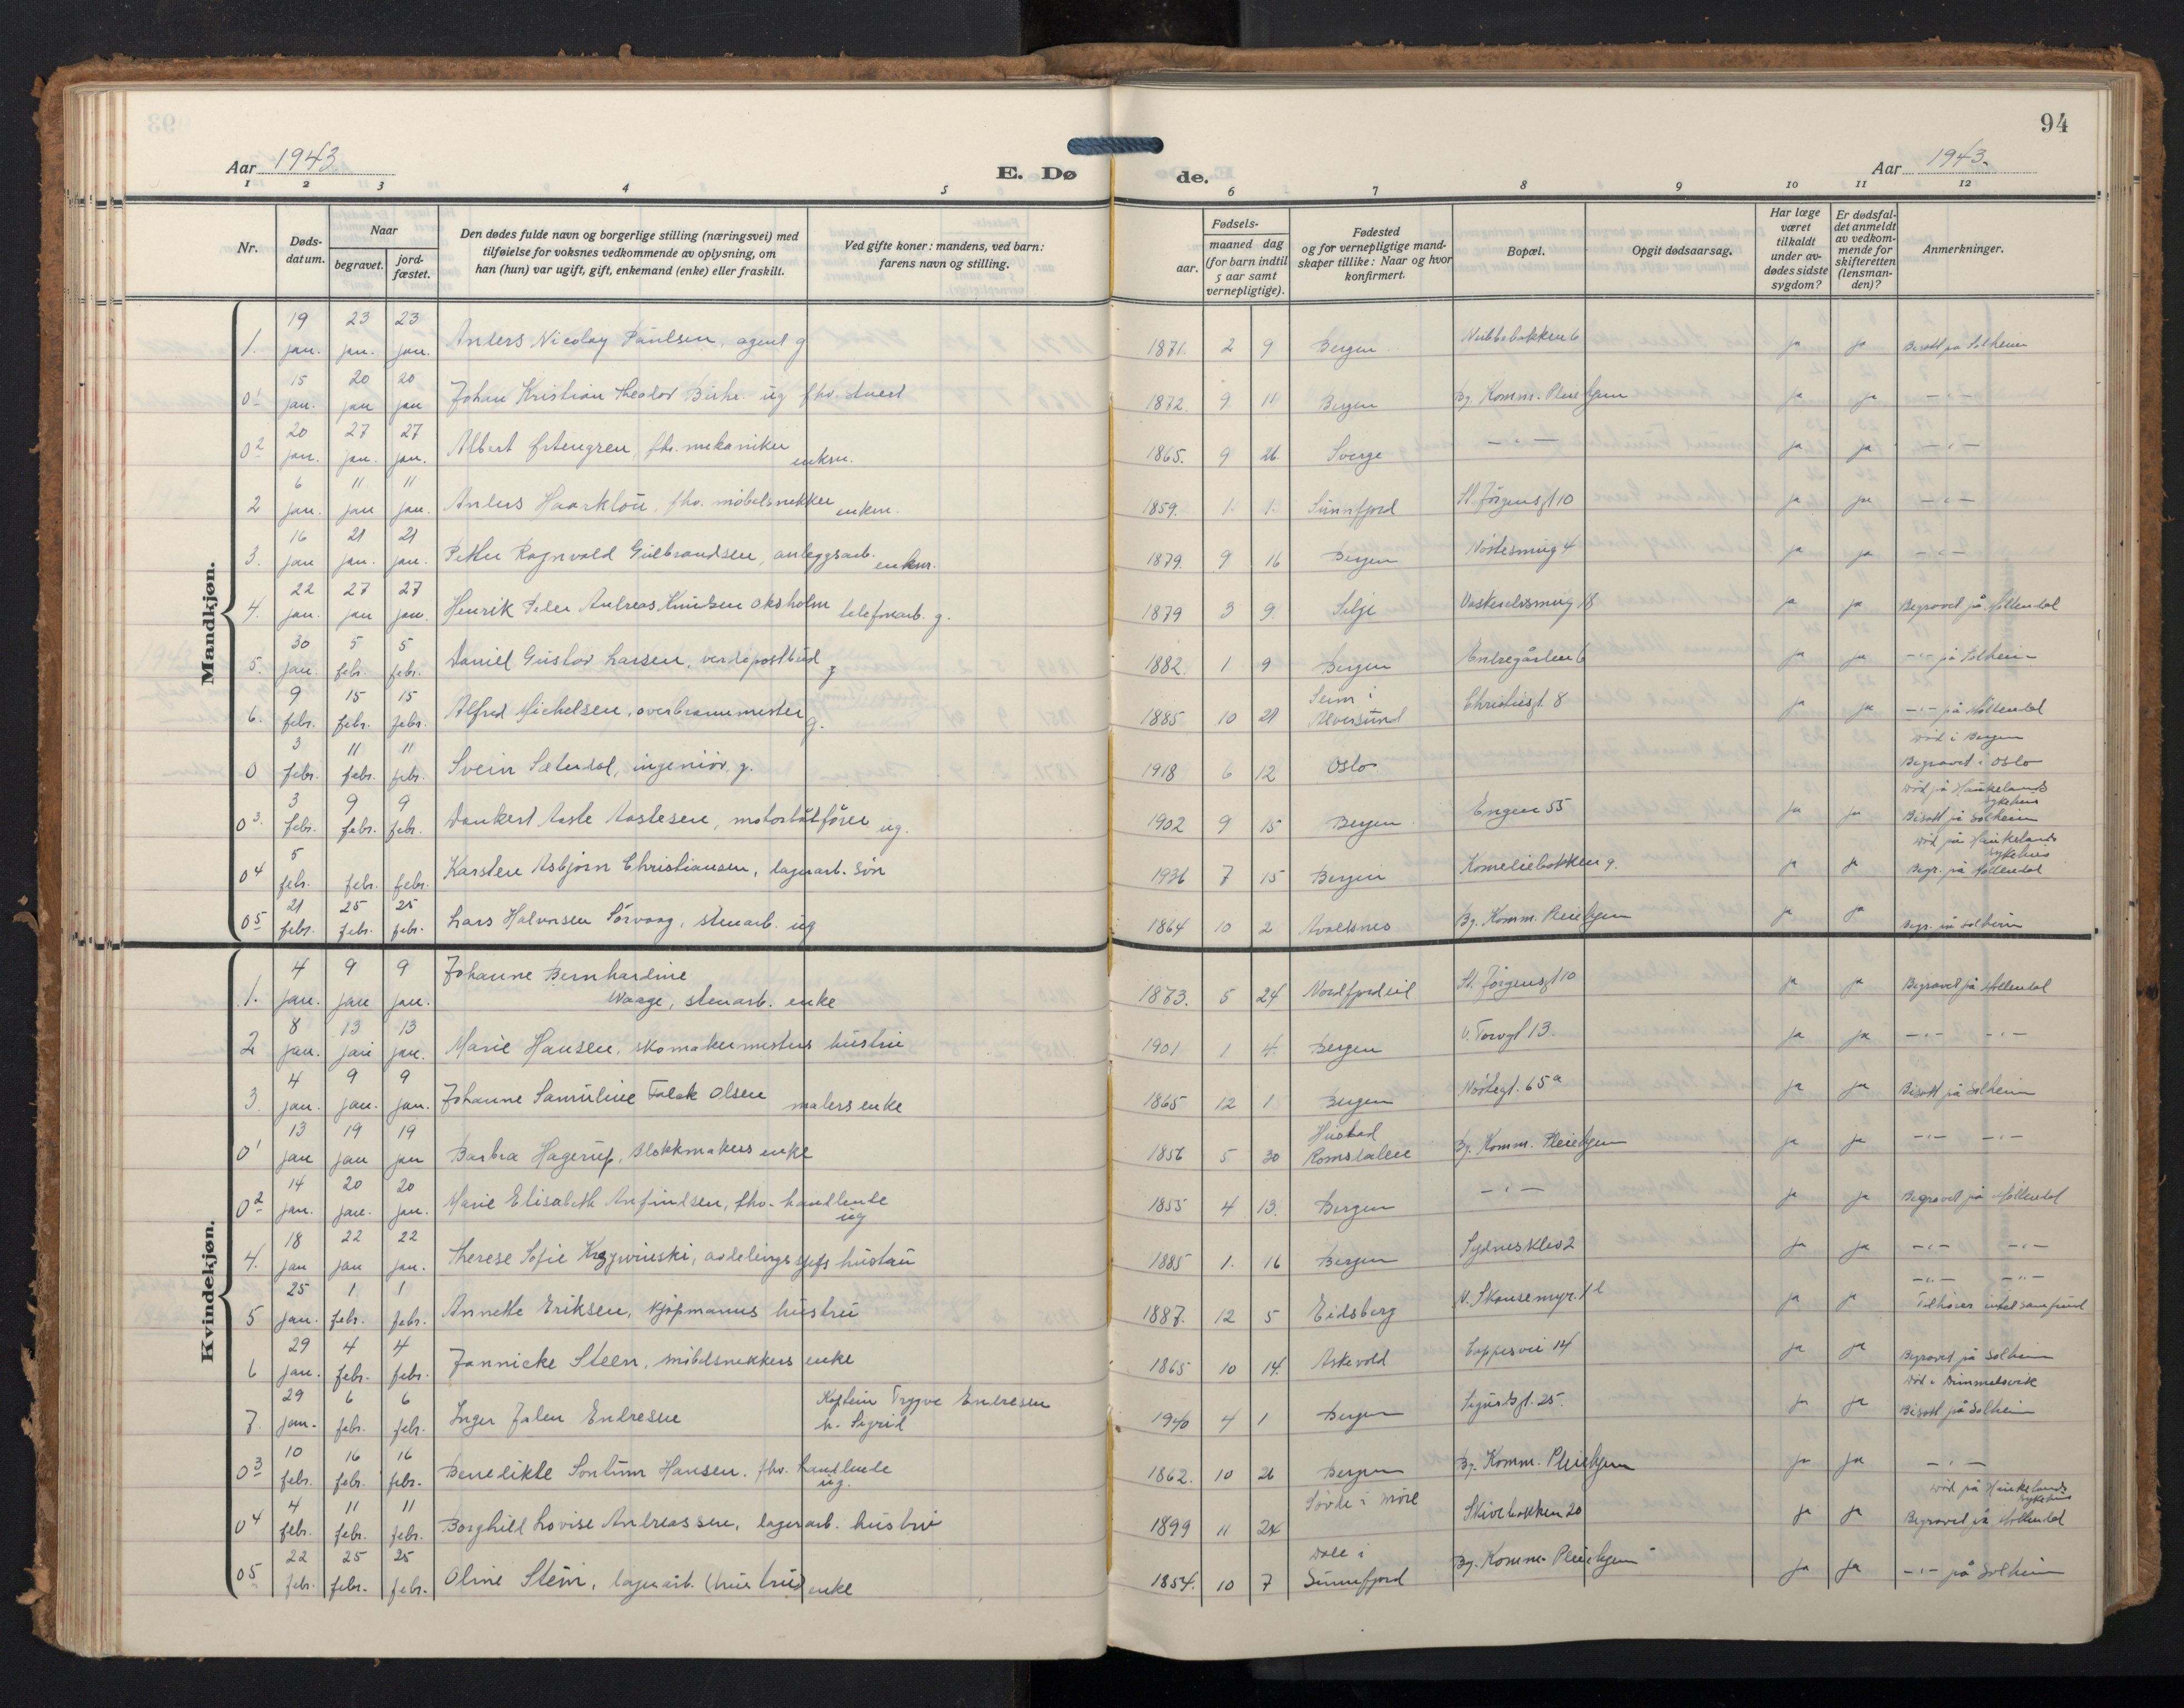 94
Aar 1943.
E. Døde.
Aar 1943.
1 2 3 4 5 6 7 8 9 10 11 12
Nr.
Døds-
datum.
Naar
begravet.
jord-
fæstet.
Den dødes fulde navn og borgerlige stilling (næringsvei) med
tilføielse for voksnes vedkommende av oplysning, om
han (hun) var ugift, gift, enkemand (enke) eller fraskilt.
Ved gifte koner: mandens, ved barn:
farens navn og stilling.
Fødsels-
aar.
maaned dag
(for barn indtil
5 aar samt
vernepligtige).
Fødested
og for vernepligtige mand-
skaper tillike: Naar og hvor
konfirmert.
Bopæl.
Opgit dødsaarsag.
Har læge
været
tilkaldt
under av-
dødes sidste
sygdom?
Er dødsfal-
det anmeldt
av vedkom-
mende for
skifteretten
(lensman-
den)?
Anmerkninger.
Mandkjøn.
1. 19 jan. 23 jan. 23 jan. Anders Nicolay Paulsen, agent g 1871. 2 9 Bergen Nubbebakken 6 ja ja Bisatt på Solheim
0 1 15 jan. 20 jan 20 jan Johan Kristian Theodor ug fhv. 1872. 9 11 Bergen Bg. Komm. Pleiehjem ja ja -"-
0 2 20 jan. 27 jan. 27 jan. Albert fhv. mekaniker enkem. 1865. 9 26 Sverge -"- ja ja -"-
2 6 jan. 11 jan 11 jan. Anders Haarklou, fhv. møbelsnekker enkem. 1859. 1. 1. Sunnfjord St. Jørgensgt 10 ja ja -"-
3. 16 jan 21 jan. 21 jan. Petter Ragnvald Gulbrandsen, anleggsarb. enkm. 1879. 9 16 Bergen Nøstesmug 4 ja ja -"-
4. 22 jan. 27 jan 27 jan. Henrik Peder Andreas Knudsen Oksholm telefonarb. g. 1879 3 9. Selje Vaskerelvsmug 18 ja ja Begravet på Møllendal
5. 30 jan. 5 febr. 5 febr. Daniel Gustav Larsen, verdipostbud g 1882. 1 9 Bergen Endregården 6 ja ja -"- på Solheim
6. 9 febr. 15 febr. 15 febr. Alfred Michelsen, overbrannmester g. 1885 10 21 Seim i Alversund Christiesgt. 8 ja ja -"- på Møllendal
0 3 febr. 11 febr. 11 febr. Svein Sæterdal, ingeniør, g. 1918 6 12 Oslo Død i Bergen Begravet i Oslo
0 3. 3 febr. 9 febr. 9 febr. Dankert Aasle Aaslesen, motorbåtfører ug. 1902 9 15 Bergen Engen 55 ja ja Død på Haukelands sykehus Bisatt på Solheim
0 4 5 febr. febr. febr. Karsten Asbjørn Christiansen, lagerarb. søn 1936 7 15 Bergen Komediebakken 9. ja ja Død på Haukelands sykehus Begr. på Møllendal
0 5 21 febr. 25 febr. 25 febr. Lars Halvorsen Sørvaag, stuearb. ug 1864 10 2 Avaldsnes Bg. Komm. Pleiehjem ja ja Begr. på Solheim
Kvindekjøn.
1. 4 jan. 9 jan 9 jan. Johanne Bernhardine
Waage, stuearb. enke 1873. 5 24 Nordfjordeid St. Jørgensgt 10 ja ja Begravet på Møllendal
2 8 jan. 13 jan 13 jan. Marie Hansen, skomakermesters hustru 1901 1 4. Bergen V. Torvgt 13. ja ja -"- -"-
3. 4 jan. 9 jan. 9 jan. Johanne Samuline Falck Olsen malers enke 1865 12 1 Bergen Nøstegt. 65a ja ja Bisatt på Solheim
0 1 13 jan 19 jan 19 jan Barbra Hagerup, blokkmakers enke 1856 5 30 Hustad Romsdalen Bg. Komm. Pleiehjem ja ja -"- -"-
0 2 14 jan. 20 jan. 20 jan. Marie Elisabeth Anfindsen, fhv. handlende ug 1855 4 13. Bergen -"- ja ja Begravet på Møllendal
4. 18 jan 22 jan 22 jan. Therese Sofie avdelingssjefs hustru 1885 1. 16 Bergen Sydneskleiv 2 ja ja -"- -"-
5 25 jan. 1 febr. 1 febr. Annette Eriksen, kjøpmanns hustru 1887. 12 5 Eidsberg N. Skansemyr. 1 ja ja -"- -"- Tilhører intet samfund
6 29 jan. 4 febr. 4 febr. Jannicke Steen, møbelsnekkers enke 1865 10 14. Askevold Cappesvei 14 ja ja Begravet på Solheim
7. 29 jan. 6 febr. 6 febr. Inger Endresen Kaptein Trygve Endresen h. Sigrid 1940 4 1 Bergen Sigurdsgt. 25. ja ja Død i Dimmelsvik Bisatt på Solheim
0 3 10 febr. 16 febr. 16 febr. Benedikte Sontum Hansen, fhv. handlende ug. 1862. 10 26 Bergen Bg. Komm. Pleiehjem ja ja -"-
0 4 4 febr. 11 febr. 11 febr. Borghild Lovise Andreassen, lagerarb. hustru 1899 11 24 Søvde i Møre Skivebakken 20 ja ja Død på Haukelands sykehus Begravet på Møllendal
0 5 22 febr. 25 febr. 25 febr. Oline Stein, lagerarb. (hustru) enke 1854. 10 7 Dale i Sunnfjord Bg. Komm. Pleiehjem ja ja -"- på Solheim